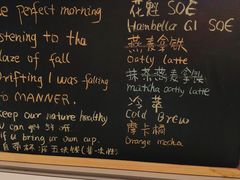 perfect morning
istening to the
laze of fall
Drifting I was falling
to MANNER.
Keep our nature healthy
ou can get 5¥ off
if u bring ur own cup.
自带杯 减五块钱
花魁 SOE
Hambella G1 SOE
燕麦拿铁
Oatly latte
抹茶燕麦拿铁
matcha oatly latte
冷萃
Cold Brew
摩卡橘
Orange mocha